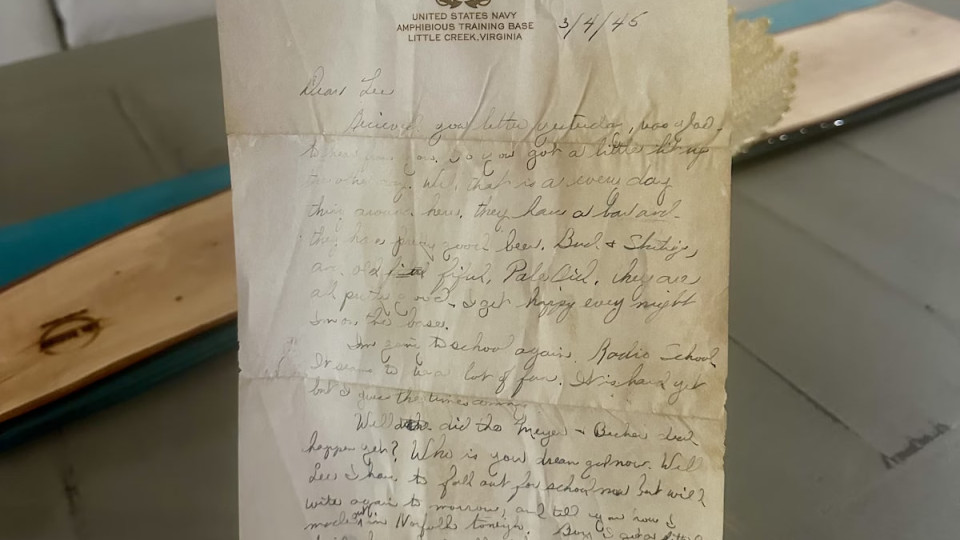 UNITED STATES NAVY
AMPHIBIOUS TRAINING BASE
LITTLE CREEK, VIRGINIA
3/4/45
Dear Lee
Recieved your letter yesterday, was glad
to hear from you. So you got a little
the other. Well, that is a every day
thing around here. they have a bar and
they have pretty good beer. Bud &
an old Pale they are
all pretty good. I get happy every night
Im on the base.
Im going to school again. Radio School
It seems to be a lot of fun. It is hard yet
but I give the time
Well did the Meyer + Becker
happen yet? Who is your dream girl now. Well
Lee I have to fall out for school now but will
write again to morrow, and tell you how I
made in Norfolk